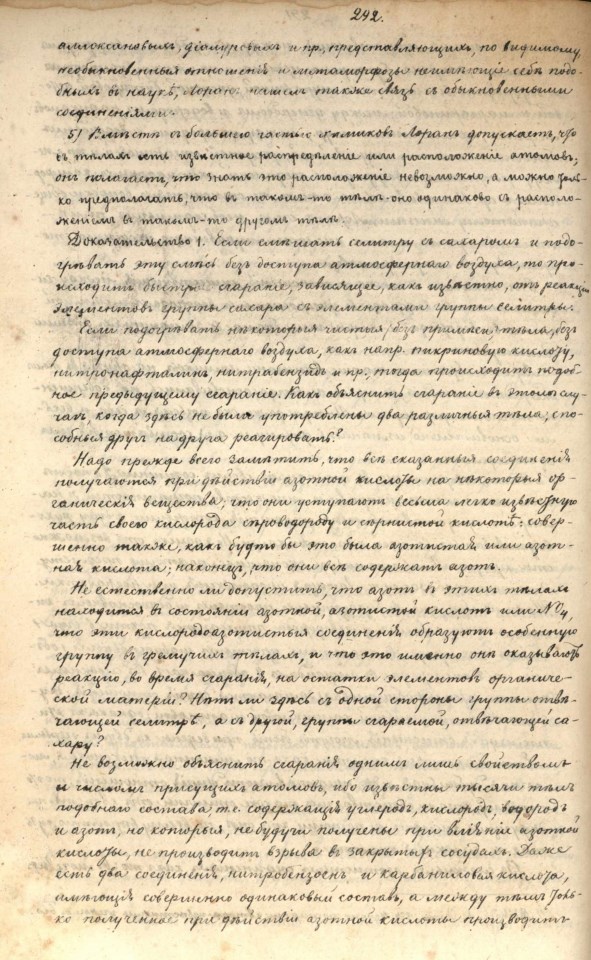 242.
аллоксановыхъ, діалуровыхъ и пр., представляющихъ, по видимому,
необыкновенныя отношенія и метаморфозы неимѣющія себѣ подо-
бныхъ въ наукѣ, Лоранъ нашелъ также связь съ обыкновенными
соединеніями.
5) Вмѣстѣ съ большею частью химиковъ Лоранъ допускаетъ, что
въ тѣлахъ есть извѣстное распредѣленіе или расположеніе атомовъ;
онъ полагаетъ, что знать это расположеніе невозможно, а можно толь-
ко предполагать, что въ такомъ-то тѣлѣ оно одинаково съ располо-
женіемъ въ такомъ-то другомъ тѣлѣ.
Доказательство 1. Если смѣшать селитру съ сахаромъ и подо-
грѣвать эту смѣсь безъ доступа атмосфернаго воздуха, то про-
исходитъ быстрое сгараніе, зависящее, какъ извѣстно, отъ реакціи
элементовъ группы сахара съ элементами группы селитры.
Если подогрѣвать нѣкоторыя чистыя, безъ примѣси, тѣла, безъ
доступа атмосфернаго воздуха, какъ напр. пикриновую кислоту,
нитронафталинъ, нитрабензидъ и пр., тогда происходитъ подоб-
ное предыдущему сгараніе. Какъ объяснить сгараніе въ этомъ слу-
чаѣ, когда здѣсь не были употреблены два различныя тѣла, спо-
собныя другъ на друга реагировать?
Надо прежде всего замѣтить, что всѣ сказанныя соединенія
получаются при дѣйствіи азотной кислоты на нѣкоторыя ор-
ганическія вещества; что они уступаютъ весьма легко извѣстную
часть своего кислорода сѣроводороду и сѣрнистой кислотѣ: совер-
шенно также, какъ будто бы это была азотистая или азот-
ная кислота; наконецъ, что они всѣ содержатъ азотъ.
Не естественно ли допустить, что азотъ въ этихъ тѣлахъ
находится въ состояніи азотной, азотистой кислотъ или
что эти кислородоазотистыя соединенія образуютъ особенную
группу въ гремучихъ тѣлахъ, и что это именно онѣ оказываютъ
реакцію, во время сгаранія, на остатки элементовъ органиче-
ской матеріи? Нѣтъ ли здѣсь съ одной стороны группы отвѣ-
чающей селитрѣ, а съ другой, группы сгараемой, отвѣчающей са-
хару?
Не возможно объяснить сгаранія однимъ лишь свойствомъ
и числомъ присущихъ атомовъ, ибо извѣстны тысячи тѣлъ
подобнаго состава, т.е. содержащія углеродъ, кислородъ, водородъ
и азотъ, но которыя, не будучи получены при вліяніи азотной
кислоты, не производятъ взрыва въ закрытыхъ сосудахъ. Даже
есть два соединенія, нитробензоенъ и карбаниловая кислота,
имѣющія совершенно одинаковый составъ, а между тѣмъ толь-
ко полученное при дѣйствіи азотной кислоты производитъ